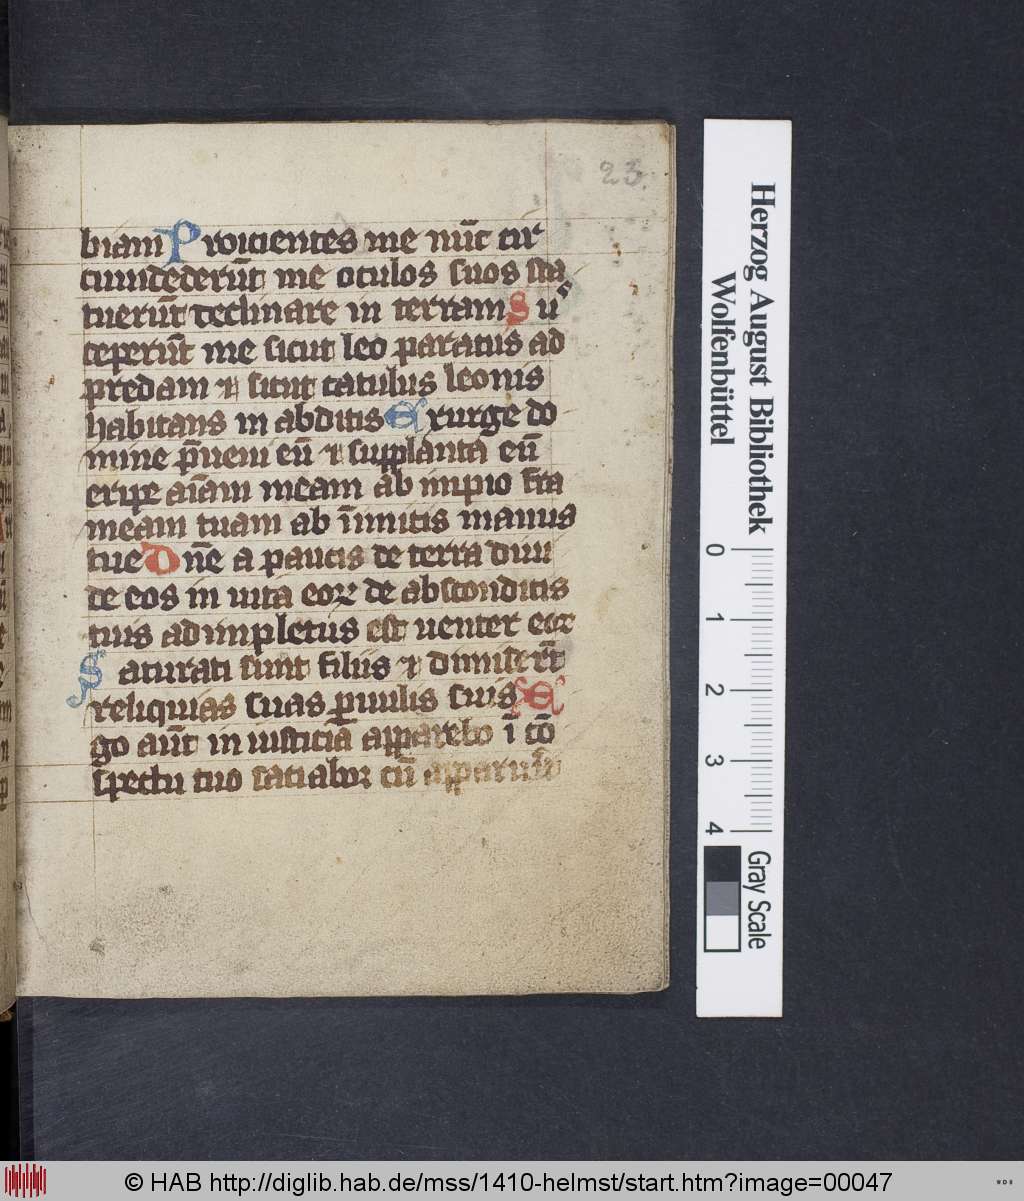 23.
biam Proicientes me nūc cir
cumdederūt me oculos suos sta
tuerūt declinare in terram Sus
ceperūt me sicut leo paratus ad
predam ⁊ sicut catulus leonis
habitans in abditis Exurge do
mine p̄ueni eū ⁊ supplanta eū
eripe aīam meam ab impio fra
meam tuam ab īimicis manus
tue Dn̄e a paucis de terra diui
de eos in uita eoꝝ de absconditis
tuis adimpletus est uenter eoꝝ
Saturati sunt filiis ⁊ dimiser̄t
reliquias suas ꝑuulis suis E
go aūt in iusticiā apparebo ī cō
spectu tuo satiabor cū apparu͛it
Herzog August Bibliothek
Wolfenbüttel
0 1 2 3 4
Gray Scale
© HAB http://diglib.hab.de/mss/1410-helmst/start.htm?image=00047